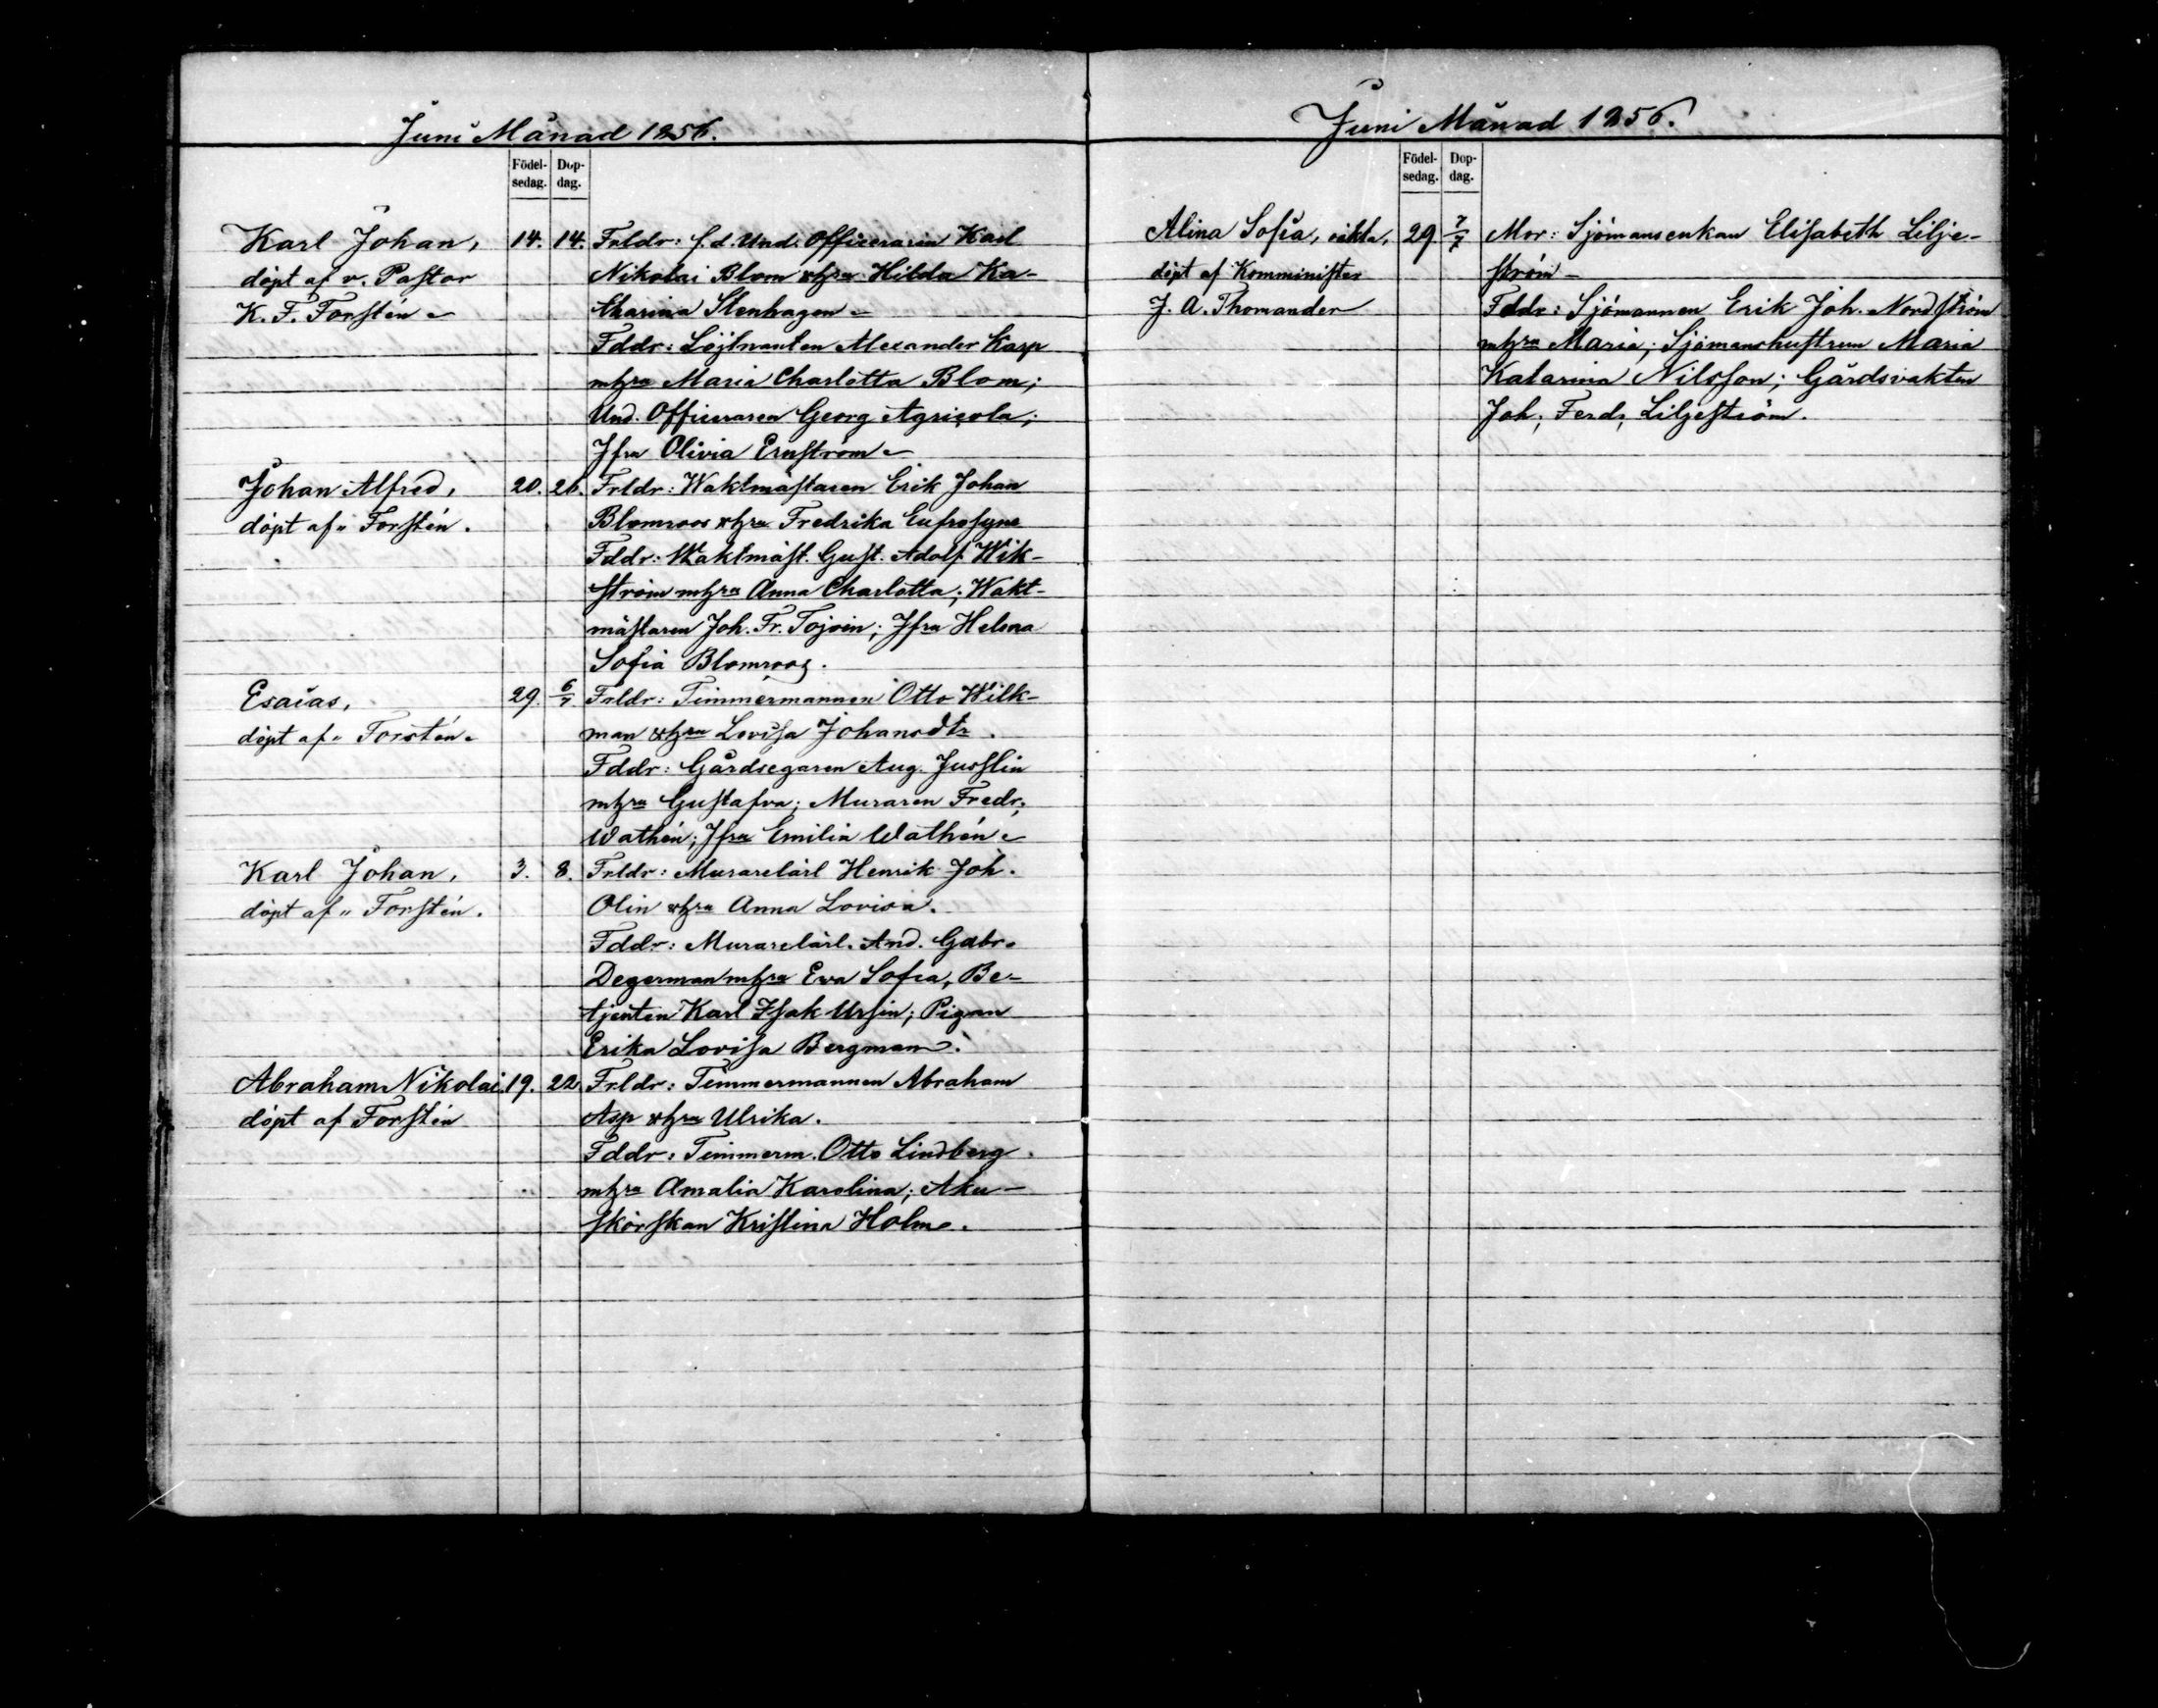 Juni Månad 1856.
Födel-
sedag.
Dop-
dag.
Karl Johan,
döpt af v. Pastor
K. F. Forstén
14. 14.
Frldr: f.d. Und. Officeraren Karl
Nikolai Blom o hru Hilda Ka-
tharina Stenhagen
Fddr: Löjtnanten Alexander Karp
m hru Maria Charlotta Blom;
Und. Officeraren Georg Agricola;
Jfru Olivia Ernström
Johan Alfred,
döpt af " Forstén.
20. 26.
Frldr: Waktmästaren Erik Johan
Blomroos o hru Fredrika Eufrosyne
Fddr: Waktmäst. Gust. Adolf Wik-
ström m hru Anna Charlotta; Wakt-
mästaren Joh. Fr. ; Jfru Helena
Sofia Blomroos.
Esaias,
döpt af " Forstén
29. 6/7.
Frldr: Timmermannen Otto Wilk-
man o hru Lovisa Johansdtr.
Fddr: Gårdsegaren Aug. Jusslin
m hru Gustafva; Muraren Fredr.
Wathén; Jfru Emilia Wathén
Karl Johan,
döpt af " Forstén.
3. 8.
Frldr: Murarelärl Henrik Joh.
Olin o hru Anna Lovisa.
Fddr: Murarelärl. And. Gabr.
Degerman m hru Eva Sofia, Be-
tjenten Karl Isak Ursin; Pigan
Erika Lovisa Bergman.
Abraham Nikolai
döpt af Forstén
19. 22.
Frldr: Timmermannen Abraham
Asp o hru Ulrika.
Fddr: Timmerm. Otto Lindberg
m hru Amalia Karolina; Aku-
skörskan Kristina Holm.
Juni Månad 1856.
Födel-
sedag.
Dop-
dag.
Alina Sofia, oäkta,
döpt af Komminister
J. A. Thomander
29 7/7
Mor: Sjömansenkan Elisabeth Lilje-
ström
Fddr: Sjömannen Erik Joh. Nordström
m hru Maria; Sjömanshustrun Maria
Katarina Nilsson; Gårdsvakten
Joh. Ferd. Liljeström.